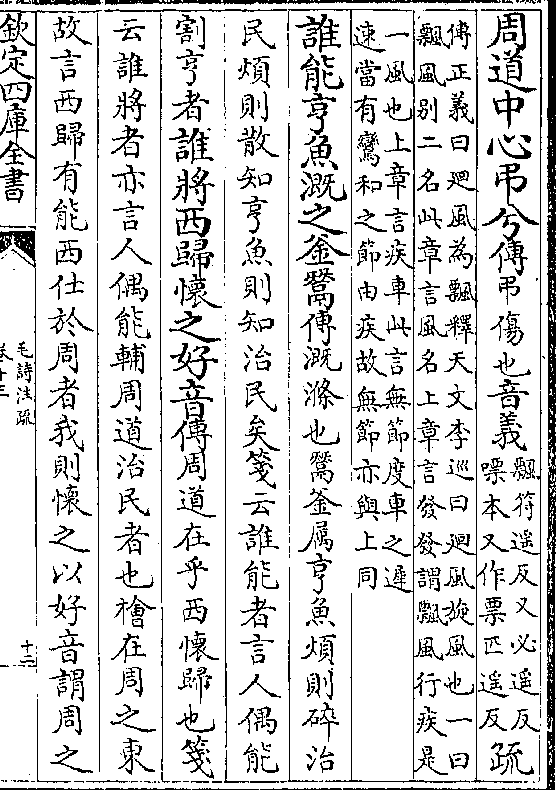 周道中心弔兮傳弔傷也音義
飄符遥反又必遥反
嘌本又作票匹遥反
疏
傳正義曰廻風為飄釋天文李巡曰廻風旋風也一曰
飄風别二名此章言風名上章言發發謂飄風行疾是
一風也上章言疾車此言無節度車之遲
速當有鸞和之節由疾故無節亦與上同
誰能亨魚溉之釜鬵傳溉滌也鬵釜屬亨魚煩則碎治
民煩則散知亨魚則知治民矣箋云誰能者言人偶能
割亨者誰將西歸懷之好音傳周道在乎西懷歸也箋
云誰將者亦言人偶能輔周道治民者也檜在周之東
故言西歸有能西仕於周者我則懷之以好音謂周之
欽定四庫全書
毛詩注疏
卷十三
十二